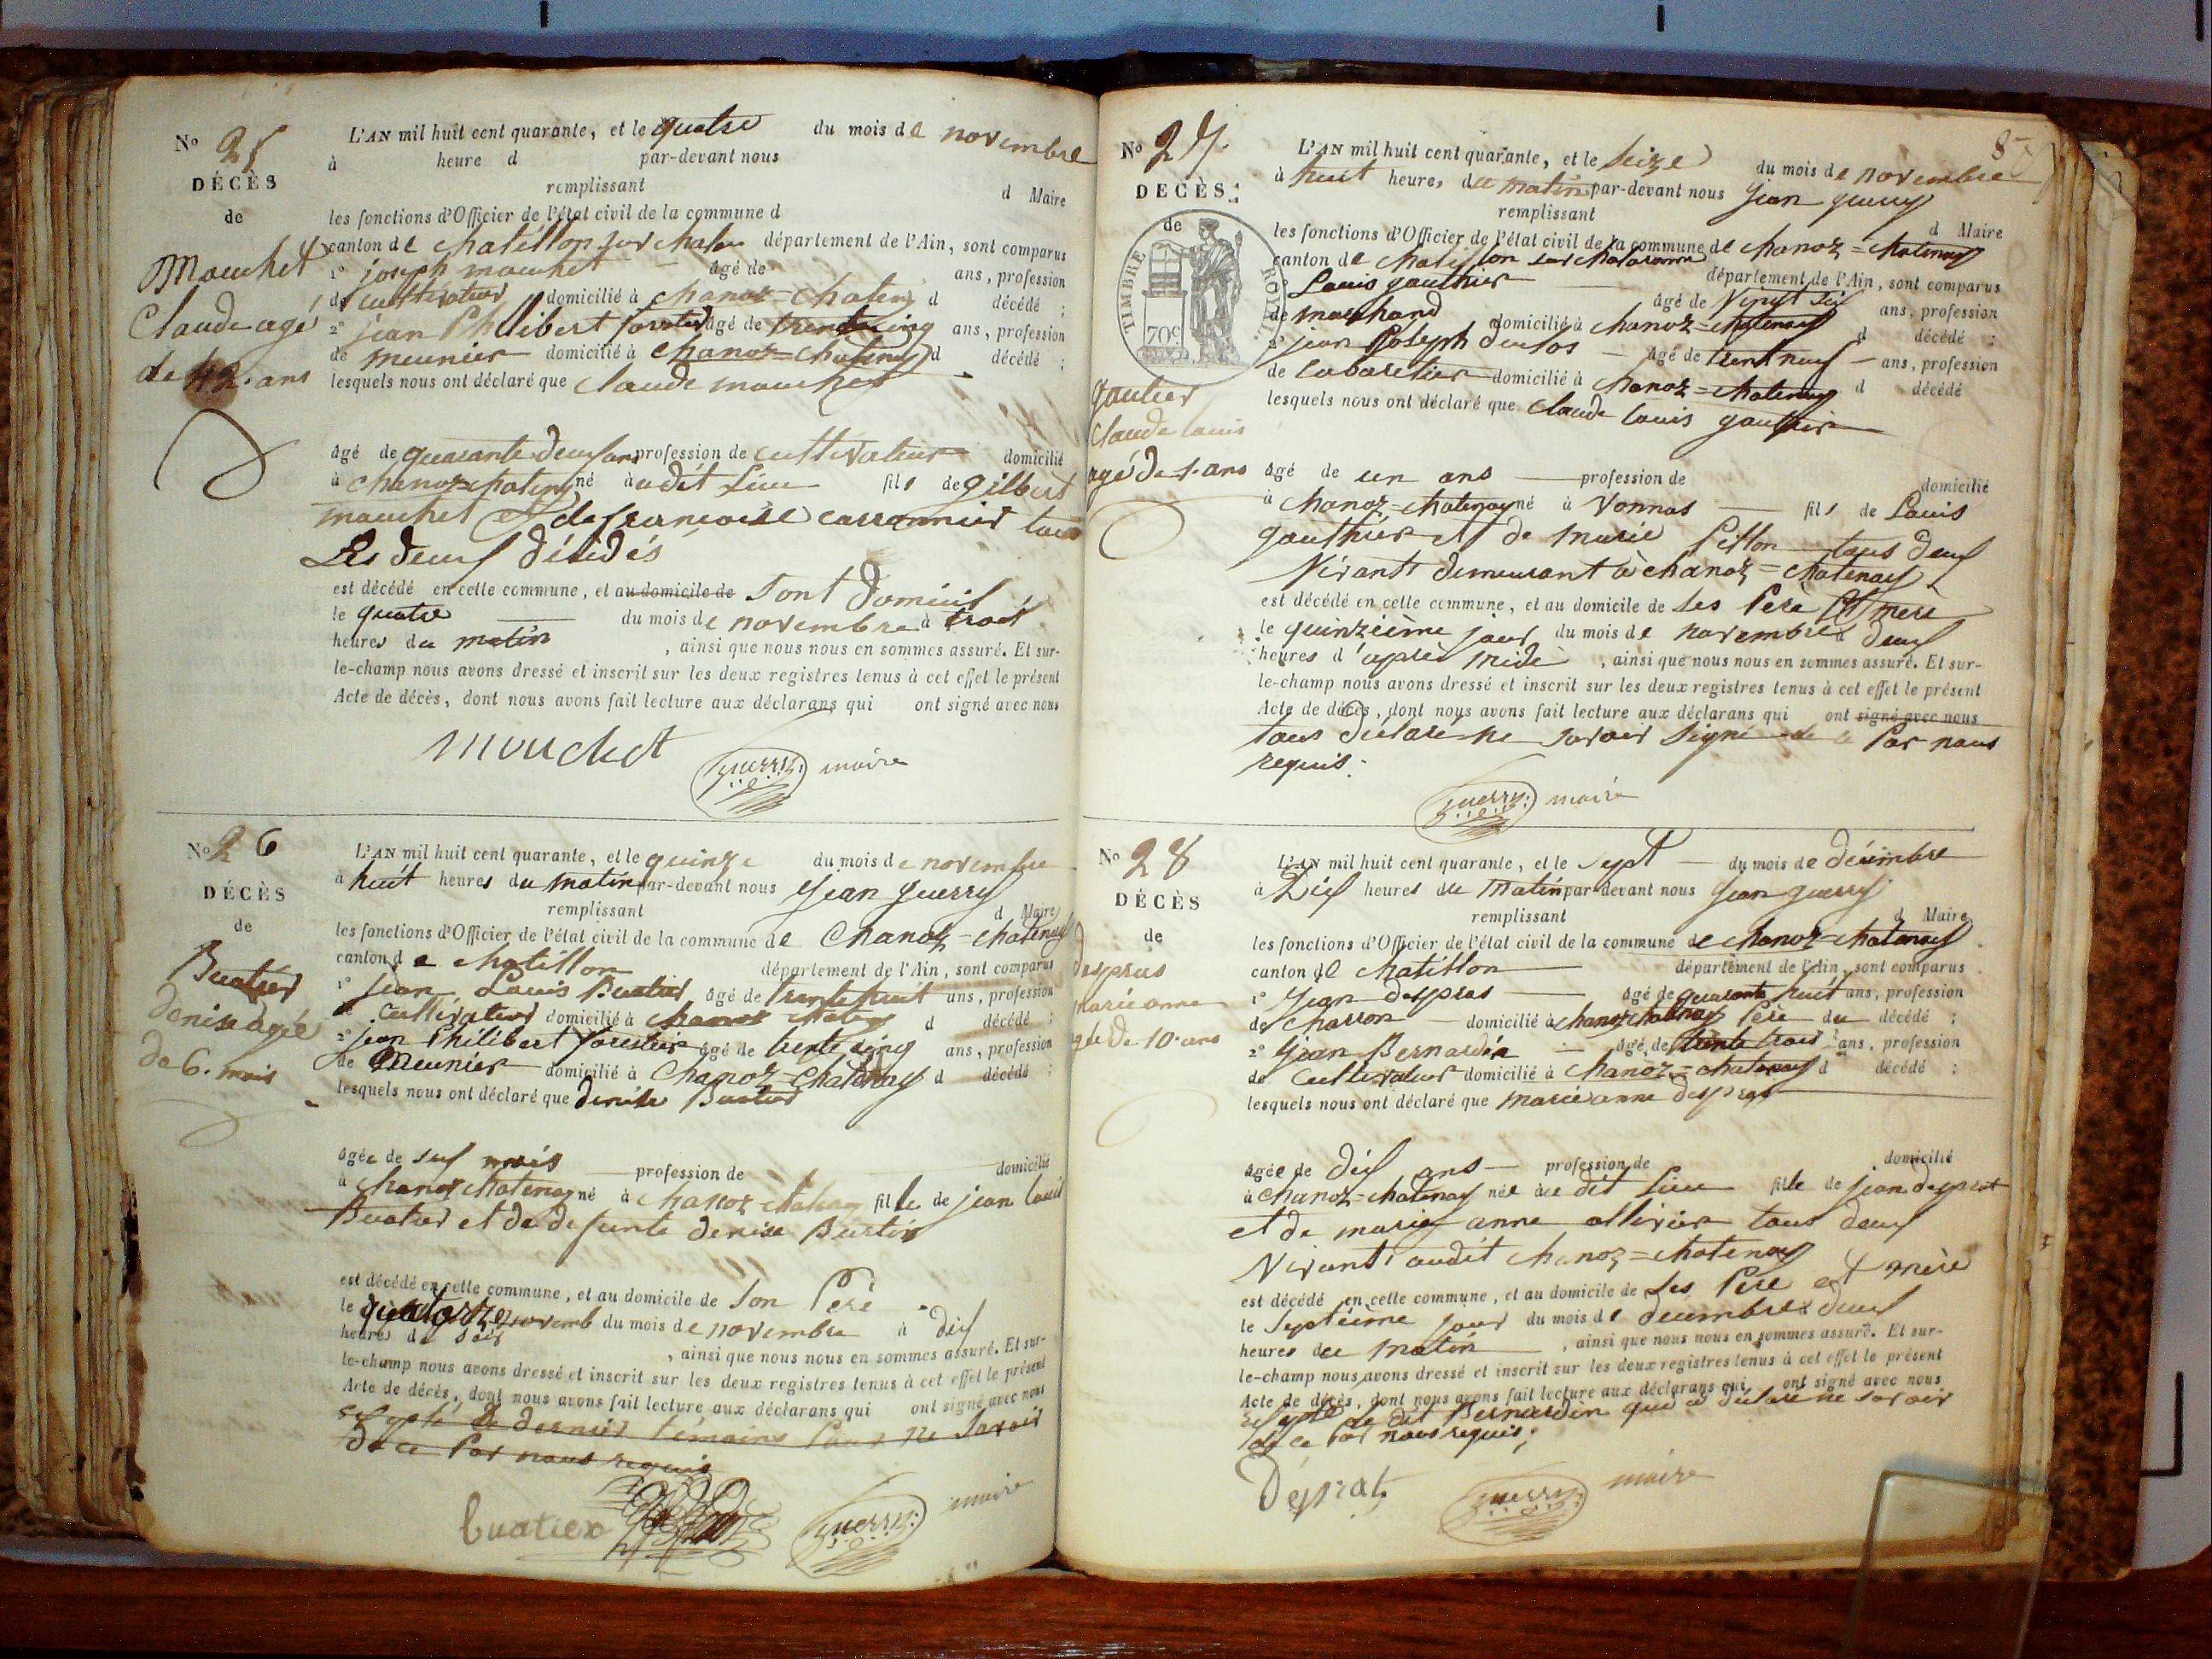 N° 25
DÉCÈS
de
Mouchet
Claude agé
de 42. ans
L'AN mil huit cent quarante, et le quatre du mois de novembre
à heure d par-devant nous
remplissant d Maire
les fonctions d'Officier de l'état civil de la commune d
canton de chatillon sur chalar département de l'Ain, sont comparus
1° joseph mouchet âgé de ans, profession
de cultivateur domicilié à chanoz=chateny d décédé ;
2° jean Philibert forestier âgé de trente cinq ans, profession
de meunier domicilié à chanoz=chatenay d décédé ;
lesquels nous ont déclaré que Claude mouchet
âgé de quarante deux ans profession de cultivateur domicilié
à chanoz chatenay né audit Lieu fils de gilbert
mouchet et de francoise carronnier tous
Les deux décidés
est décédé en cette commune, et au domicile de sont domicil
le quatre du mois de novembre à trois
heures du matin , ainsi que nous nous en sommes assuré. Et sur-
le-champ nous avons dressé et inscrit sur les deux registres tenus à cet effet le présent
Acte de décès, dont nous avons fait lecture aux déclarans qui ont signé avec nous
mouchet guerry maire
N° 26
DÉCÈS
de
Buatier
denise agée
de 6. mois
L'AN mil huit cent quarante, et le quinze du mois de novembre
à huit heures du matin par-devant nous jean guerry
remplissant d Maire
les fonctions d'Officier de l'état civil de la commune de Chanoz=chatenay
canton de chatillon département de l'Ain, sont comparus
1° jean Louis Buatier âgé de trente huit ans, profession
de cultivateur domicilié à chanoz chatenay d décédé ;
2° jean Philibert forestier âgé de trente cinq ans, profession
de meunier domicilié à Chanoz=Chatenay d décédé ;
lesquels nous ont déclaré que denise Buatier
âgée de six mois profession de domicilié
à chanoz chatenay né à chanoz chatenay fille de jean louis
Buatier et de defunte denise Burtin
est décédé en cette commune, et au domicile de son Père
le quatorze novemb du mois de novembre à dix
heures du soir , ainsi que nous nous en sommes assuré. Et sur-
le-champ nous avons dressé et inscrit sur les deux registres tenus à cet effet le présent
Acte de décès, dont nous avons fait lecture aux déclarans qui ont signé avec nous
exepté le dernier témoins pour ne savoir
de ce Par nous requis
buatier guerry maire
87
N° 27.
DÉCÈS
de
TIMBRE ROYAL
70c
gautier
claude louis
agé de 1. ans
L'AN mil huit cent quarante, et le seize du mois de novembre
à huit heures du matin par-devant nous jean guerry
remplissant d Maire
les fonctions d'Officier de l'état civil de la commune de chanoz=chatenay
canton de chatillon sur chalaronne département de l'Ain, sont comparus
Louis gauthier âgé de vingt six ans, profession
de marchand domicilié à chanoz=chatenay d décédé ;
2° jean Joseph duclos âgé de trent neuf ans, profession
de cabaretier domicilié à chanoz=chatenay d décédé
lesquels nous ont déclaré que claude louis gauthier
âgé de un ans profession de domicilié
à chanoz=chatenay né à vonnas fils de Louis
gauthier et de marie Pillon tous deux
vivants demeurant à chanoz=chatenay
est décédé en cette commune, et au domicile de ses Père et mere
le quinzième jour du mois de novembre à deux
heures d'après midi , ainsi que nous nous en sommes assuré. Et sur-
le-champ nous avons dressé et inscrit sur les deux registres tenus à cet effet le présent
Acte de décès, dont nous avons fait lecture aux déclarans qui ont signé avec nous
tous déclare ne savoir signé de ce Par nous
requis.
guerry maire
N° 28
DÉCÈS
de
despras
marie anne
agée de 10. ans
L'AN mil huit cent quarante, et le sept du mois de décembre
à Dix heures du matin par-devant nous jean guerry
remplissant d Maire
les fonctions d'Officier de l'état civil de la commune de chanoz=chatenay
canton de chatillon département de l'Ain, sont comparus
1° jean despras âgé de quarante huit ans, profession
de charron domicilié à chanoz chatenay Père du décédé ;
2° jean Bernardin âgé de trente trois ans, profession
de cultivateur domicilié à chanoz=chatenay d décédé ;
lesquels nous ont déclaré que marie anne despras
âgée de dix ans profession de domicilié
à chanoz=chatenay née au dit Lieu fille de jean desprat
et de marie anne ollivier tous deux
vivants audit chanoz=chatenay
est décédé en cette commune, et au domicile de ses Père et mère
le septième jour du mois de décembre à deux
heures du matin , ainsi que nous nous en sommes assuré. Et sur-
le-champ nous avons dressé et inscrit sur les deux registres tenus à cet effet le présent
Acte de décès, dont nous avons fait lecture aux déclarans qui ont signé avec nous
exepté le dit Bernardin qui a déclaré ne savoir
de ce Par nous requis;
Déprat guerry maire